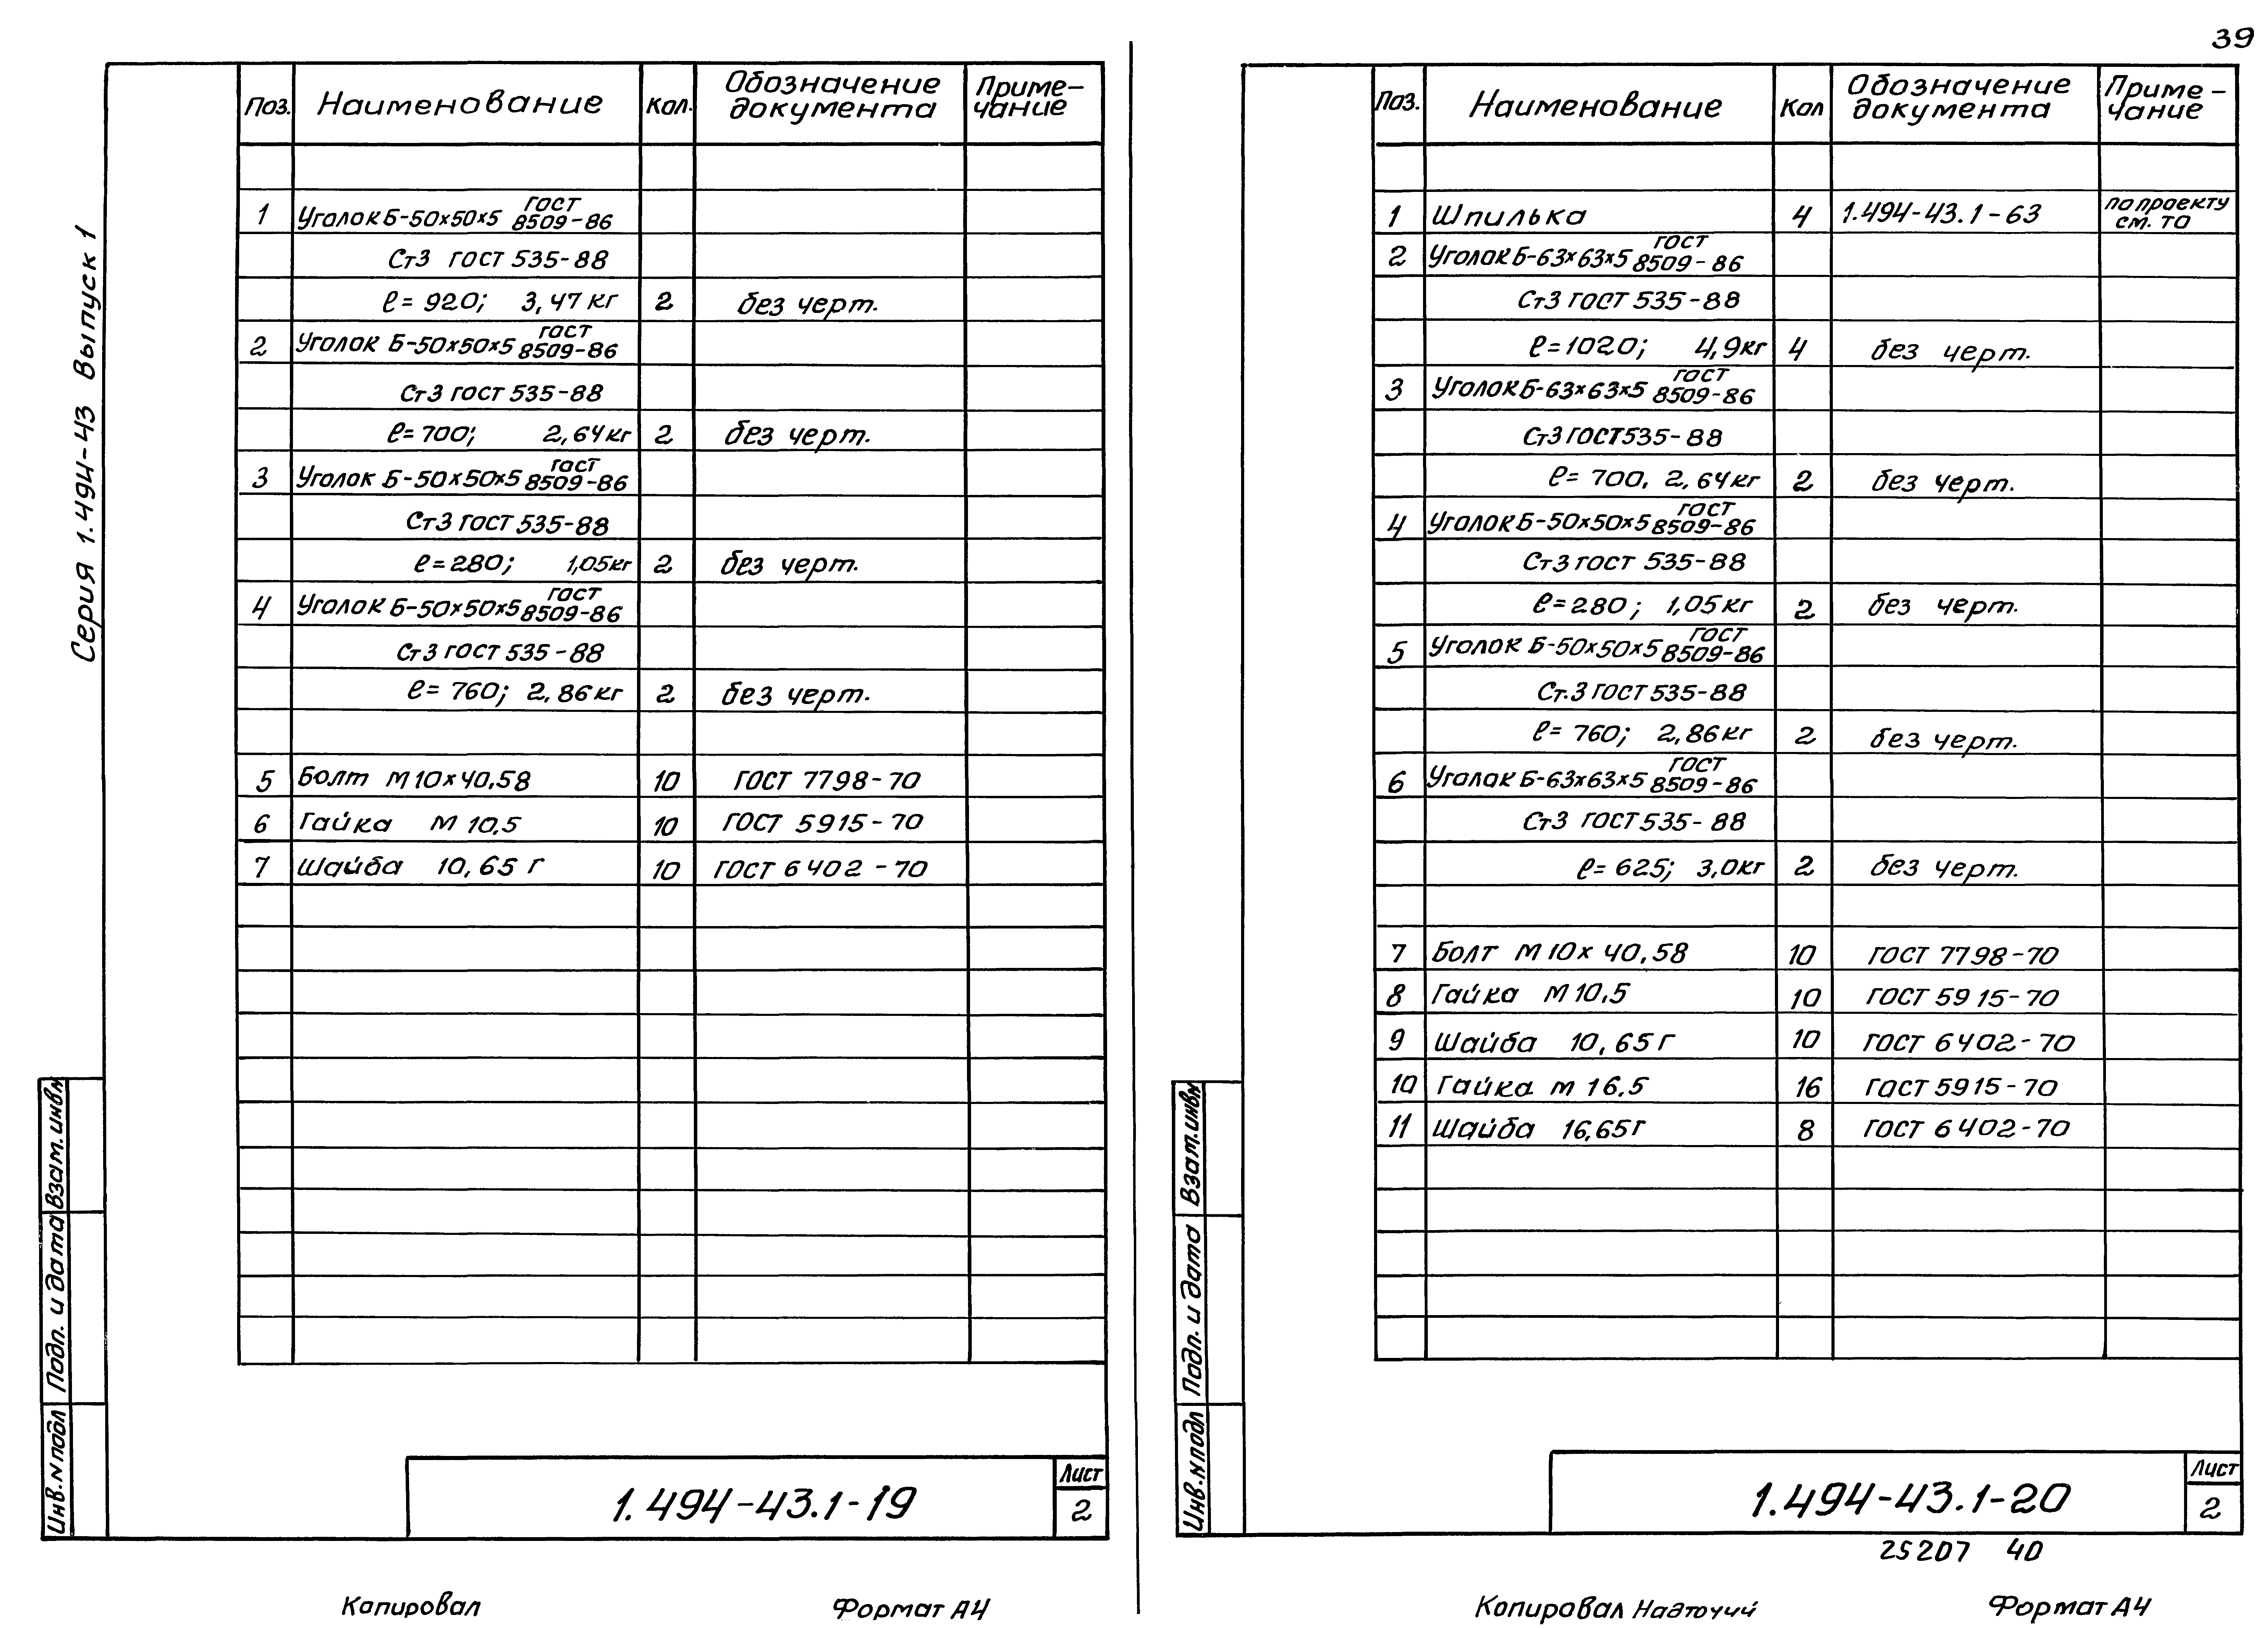 39
Серия 1.494-43 Выпуск 1
Поз. Наименование Кол. Обозначение документа Приме-чание
1 Уголок Б-50х50х5 ГОСТ 8509-86
Ст3 ГОСТ 535-88
ℓ= 920; 3,47 кг 2 без черт.
2 Уголок Б-50х50х5 ГОСТ 8509-86
Ст3 ГОСТ 535-88
ℓ= 700; 2,64 кг 2 без черт.
3 Уголок Б-50х50х5 ГОСТ 8509-86
Ст3 ГОСТ 535-88
ℓ= 280; 1,05 кг 2 без черт.
4 Уголок Б-50х50х5 ГОСТ 8509-86
Ст3 ГОСТ 535-88
ℓ= 760; 2,86 кг 2 без черт.
5 Болт М10х40.58 10 ГОСТ 7798-70
6 Гайка М 10.5 10 ГОСТ 5915-70
7 Шайба 10, 65 Г 10 ГОСТ 6402-70
Взам. инв№
Подп. и дата
Инв.№подл
1.494-43.1-19
Лист
2
Копировал Формат А4
Поз. Наименование Кол Обозначение документа Приме-чание
1 Шпилька 4 1.494-43.1-63 по проекту см. ТО
2 Уголок Б-63х63х5 ГОСТ 8509-86
Ст3 ГОСТ 535-88
ℓ=1020; 4,9кг 4 без черт.
3 Уголок Б-63х63х5 ГОСТ 8509-86
Ст3 ГОСТ535-88
ℓ= 700, 2,64кг 2 без черт.
4 Уголок Б-50х50х5 ГОСТ 8509-86
Ст3 ГОСТ 535-88
ℓ=280; 1,05кг 2 без черт.
5 Уголок Б-50х50х5 ГОСТ 8509-86
Ст.3 ГОСТ 535-88
ℓ= 760; 2,86кг 2 без черт.
6 Уголок Б-63х63х5 ГОСТ 8509-86
Ст3 ГОСТ535-88
ℓ= 625; 3,0кг 2 без черт.
7 Болт М10х 40.58 10 ГОСТ 7798-70
8 Гайка М10.5 10 ГОСТ 5915-70
9 Шайба 10, 65 Г 10 ГОСТ 6402-70
10 Гайка М 16.5 16 ГОСТ 5915-70
11 Шайба 16,65Г 8 ГОСТ 6402-70
Взам. инв№
Подп. и дата
Инв.№подл
1.494-43.1-20
Лист
2
25207 40
Копировал Надточий Формат А4